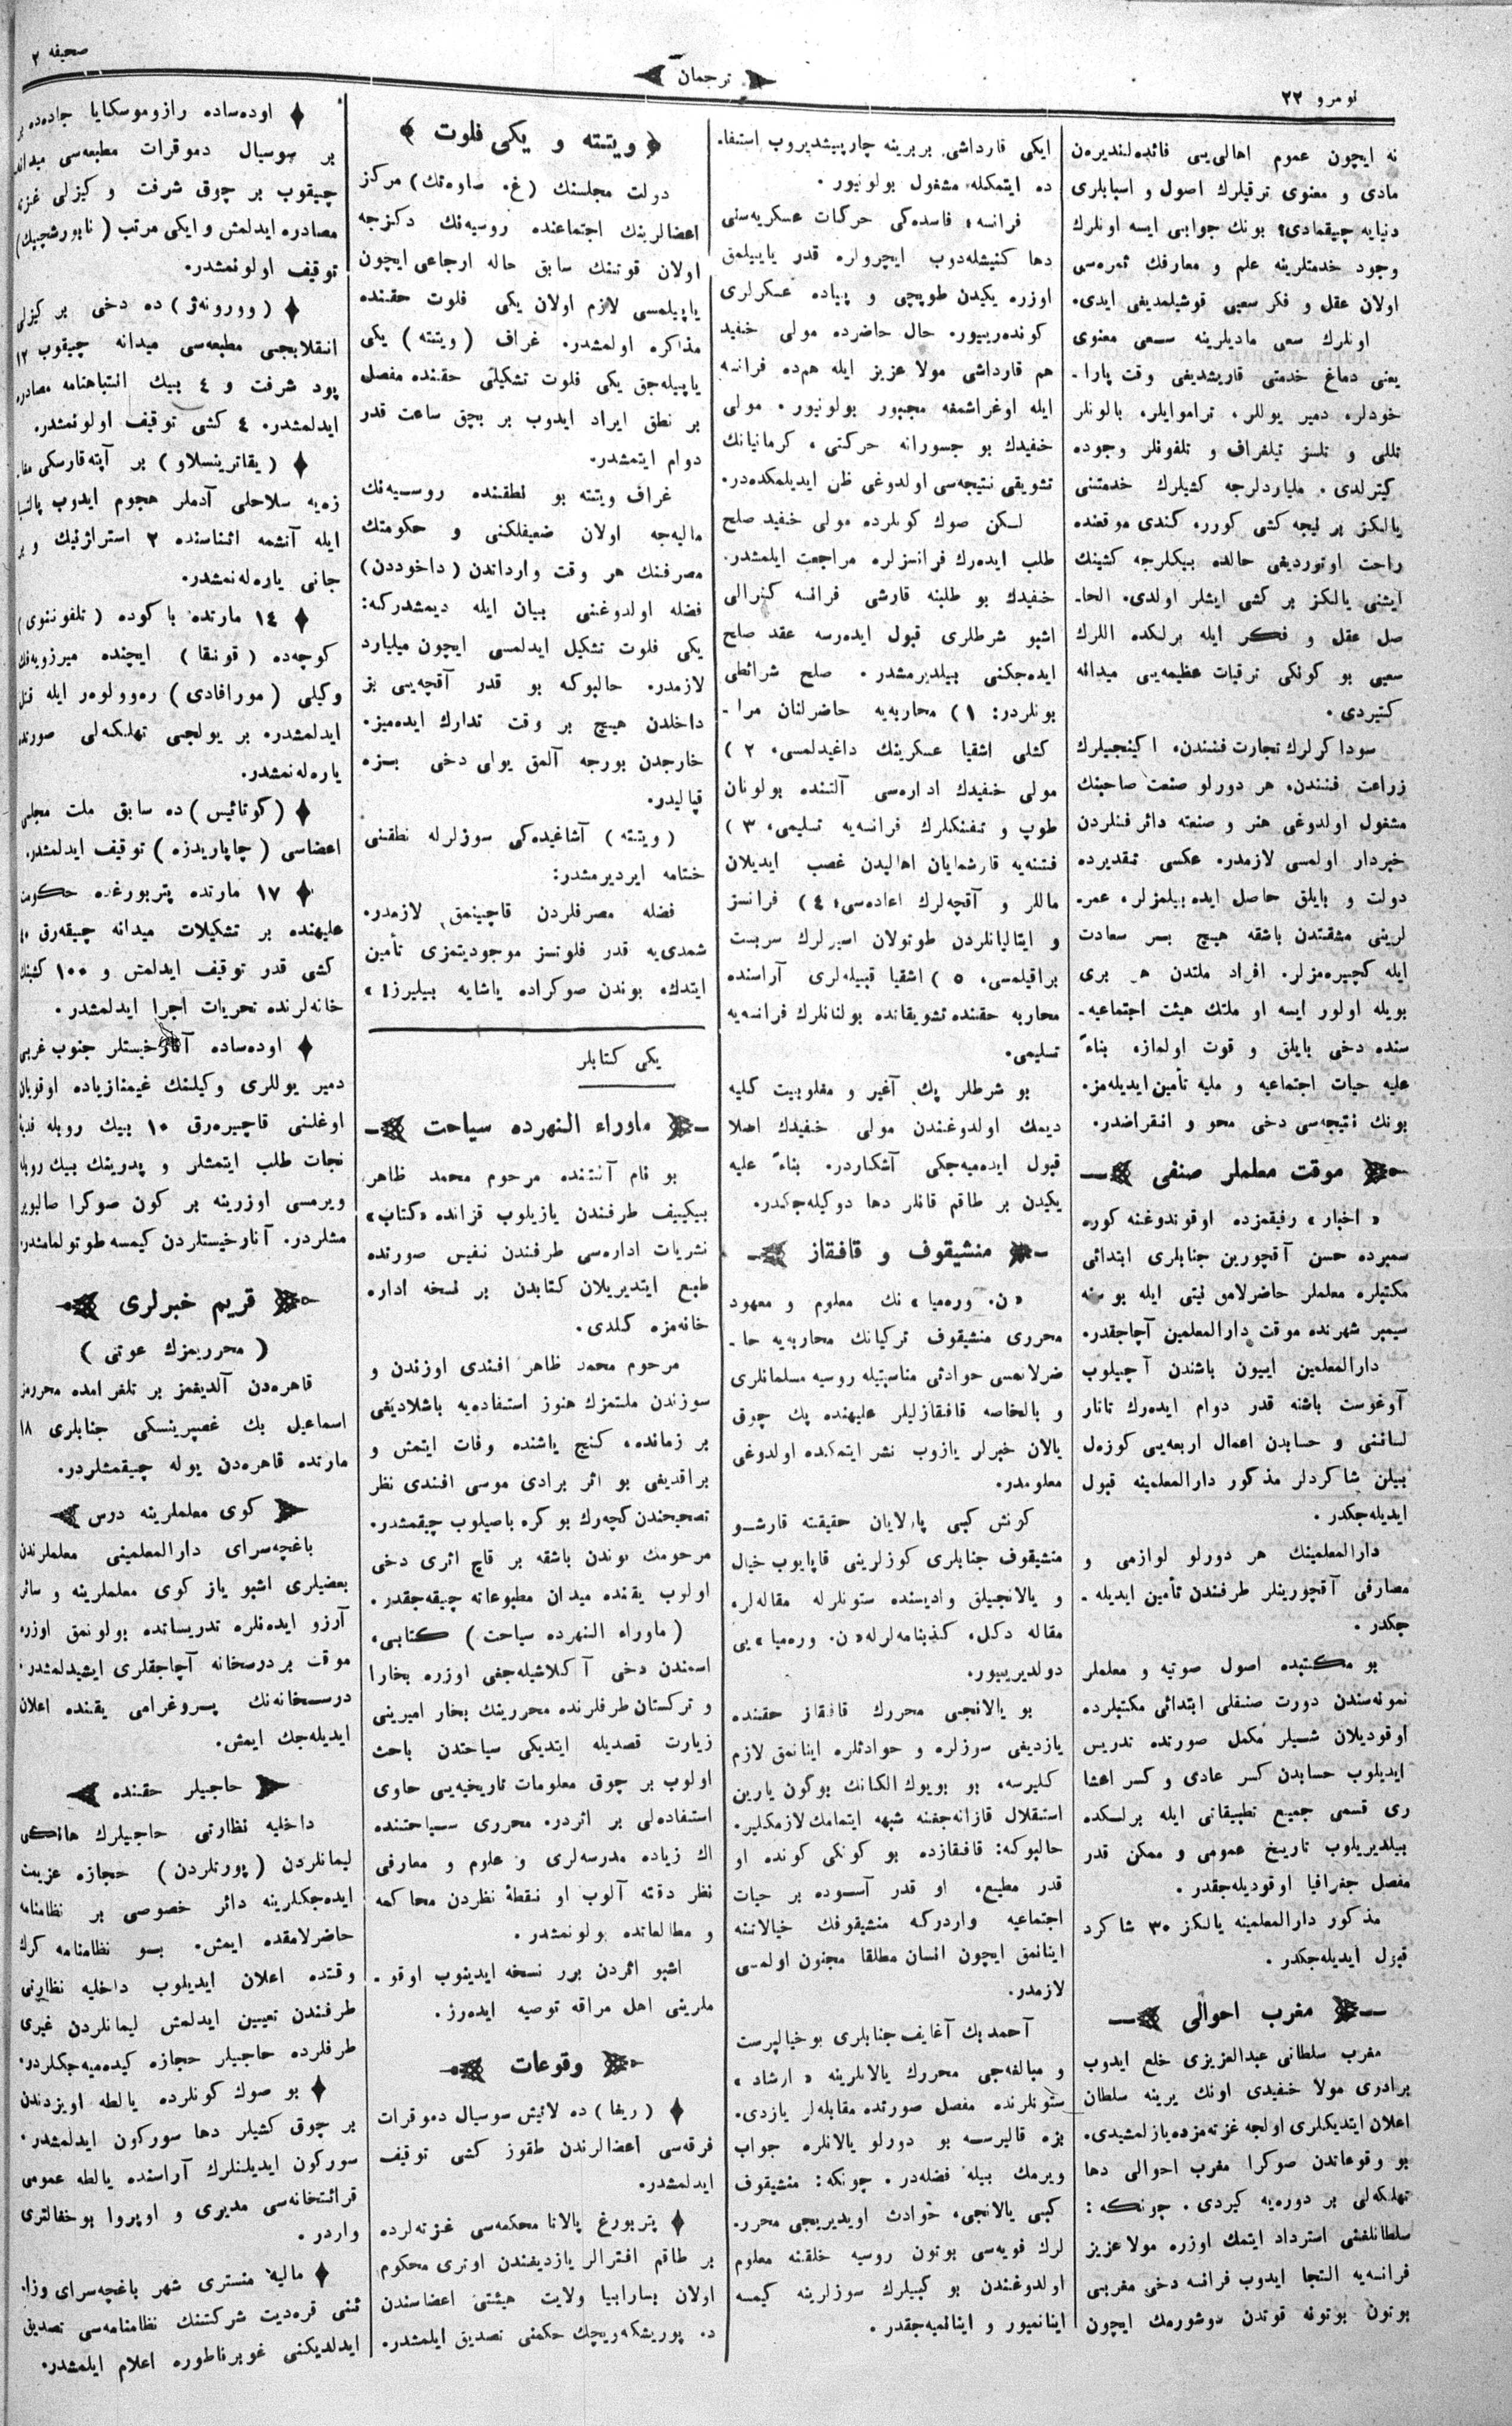 نومرو ٢٢
ترجمان
صحیفه ٢
نه ایچون عموم اهالی‌یی فائده‌لندیره‌ن
مادی و معنوی ترقیلرك اصول و اسبابلری
دنیایه چیقمادی؟ بونك جوابی ایسه اونلرك
وجود خدمتلرینه علم و معارفك ثمره‌سی
اولان عقل و فكر سعیی قوشیلمدیغی ایدی.
اونلرك سعی مادیلرینه سعی معنوی
یعنی دماغ خدمتی قاریشدیغی وقت پارا-
خودلر، دمیر یوللر، تراموایلر، بالونلر
تللی و تلسز تیلفراف و تلفونلر وجوده
كیترلدی. ملیاردلرجه كشیلرك خدمتنی
یالكز بر نیجه كشی كورر. كندی موقعنده
راحت اوتوردیغی حالده بیكلرجه كشینك
ایشنی یالكز بر كشی ایشلر اولدی. الحا-
صل عقل و فكر ایله برلكده اللرك
سعیی بو كونكی ترقیات عظیمه‌یی میدانه
كتیردی.
سوداكرلرك تجارت فنندن، اكینجیلرك
زراعت فنندن، هر دورلو صنعت صاحبنك
مشغول اولدوغی هنر و صنعته دائر فنلردن
خبردار اولمسی لازمدر. عكسی تقدیرده
دولت و بایلق حاصل ایده‌بیلمزلر، عمر-
لرینی مشقتدن باشقه هیچ بر سعادت
ایله كچیره‌مزلر. افراد ملتدن هر بری
بویله اولور ایسه او ملتك هیئت اجتماعیه-
سنده دخی بایلق و قوت اولماز، بناءً
علیه حیات اجتماعیه و ملیه تأمین ایدیله‌مز.
بونك نتیجه‌سی دخی محو و انقراضدر.
موقت معلملر صنفی
« اخبار » رفیقمزده اوقوندوغنه كوره
سمبرده حسن آقچورین جنابلری ابتدائی
مكتبلره معلملر حاضرلامق نیتی ایله بو سنه
سیمبر شهرنده موقت دارالمعلمین آچاجقدر.
دارالمعلمین اییون باشندن آچیلوب
آوغوست باشنه قدر دوام ایده‌رك تاتار
لساننی و حسابدن اعمال اربعه‌یی كوزه‌ل
بیلن شاكردلر مذكور دارالمعلمینه قبول
ایدیله‌جكدر.
دارالمعلمینك هر دورلو لوازمی و
مصارفی آقچورینلر طرفندن تأمین ایدیله-
جكدر.
بو مكتبده اصول صوتیه و معلملر
نمونه‌سندن دورت صنفلی ابتدائی مكتبلرده
اوقودیلان شیلر مكمل صورتده تدریس
ایدیلوب حسابدن كسر عادی و كسر اعشا
ری قسمی جمیع تطبیقاتی ایله برلكده
بیلدیریلوب تاریخ عمومی و ممكن قدر
مفصل جغرافیا اوقودیله‌جقدر.
مذكور دارالمعلمینه یالكز ٣٠ شاكرد
قبول ایدیله‌جكدر.
مغرب احوالی
مغرب سلطانی عبدالعزیزی خلع ایدوب
برادری مولا خفیدی اونك یرینه سلطان
اعلان ایتدیكلری اولجه غزته‌مزده یازلمشیدی.
بو وقوعاتدن صوكرا مغرب احوالی دها
تهلكه‌لی بر دوره‌یه كیردی. چونكه:
سلطانلغنی استرداد ایتمك اوزره مولا عزیز
فرانسه‌یه التجا ایدوب فرانسه دخی مغربی
بوتون بوتونه قوتدن دوشورمك ایچون
ایكی قارداشی بربرینه چارپیشدیروب استفا-
ده ایتمكله مشغول بولونیور.
فرانسه، فاسده‌كی حركات عسكریه‌سنی
دها كنیشله‌دوب ایچرولره قدر یاییلمق
اوزره یكیدن طوپچی و پیاده عسكرلری
كونده‌رییور. حال حاضرده مولی خفید
هم قارداشی مولا عزیز ایله هم‌ده فرانسه
ایله اوغراشمغه مجبور بولونیور. مولی
خفیدك بو جسورانه حركتی، كرمانیانك
تشویقی نتیجه‌سی اولدوغی ظن ایدیلمكده‌در.
لكن صوك كونلرده مولی خفید صلح
طلب ایده‌رك فرانسزلره مراجعت ایلمشدر.
خفیدك بو طلبنه قارشی فرانسه كنرالی
اشبو شرطلری قبول ایده‌رسه عقد صلح
ایده‌جكنی بیلدیرمشدر. صلح شرائطی
بونلردر: ١) محاربه‌یه حاضرلنان مرا-
كشلی اشقیا عسكرینك داغیدلمسی، ٢)
مولی خفیدك اداره‌سی آلتنده بولونان
طوپ و تفنكلرك فرانسه‌یه تسلیمی، ٣)
فتنه‌یه قارشمایان اهالیدن غصب ایدیلان
ماللر و آقچه‌لرك اعاده‌سی، ٤) فرانسز
و ایتالیانلردن طوتولان اسیرلرك سربست
براقیلمسی، ٥) اشقیا قبیله‌لری آراسنده
محاربه حقنده تشویقانده بولنانلرك فرانسه‌یه
تسلیمی.
بو شرطلر پك آغیر و مغلوبیت كلیه
دیمك اولدوغندن مولی خفیدك اصلا
قبول ایده‌میه‌جكی آشكاردر. بناءً علیه
یكیدن بر طاقم قانلر دها دوكیله‌جكدر.
منشیقوف و قافقاز
«ن. وره‌میا» نك معلوم و معهود
محرری منشیقوف تركیانك محاربه‌یه حا-
ضرلانمسی حوادثی مناسبتیله روسیه مسلمانلری
و بالخاصه قافقازلیلر علیهنده پك چوق
یالان خبرلر یازوب نشر ایتمكده اولدوغی
معلومدر.
كونش كبی پارلایان حقیقته قارشو
منشیقوف جنابلری كوزلرینی قاپایوب خیال
و یالانجیلق وادیسنده ستونلرله مقاله‌لر،
مقاله دكل، كذبنامه‌لرله «ن. وره‌میا» یی
دولدیرییور.
بو یالانجی محررك قافقاز حقنده
یازدیغی سوزلره و حوادثلره اینانمق لازم
كلیرسه، بو بویوك الكانك بوكون یارین
استقلال قازانه‌جغنه شبهه ایتمامك لازمكلیر.
حالبوكه: قافقازده بو كونكی كونده او
قدر مطیع، او قدر آسوده بر حیات
اجتماعیه واردركه منشیقوفك خیالاتنه
اینانمق ایچون انسان مطلقا مجنون اولمسی
لازمدر.
آحمد بك آغایف جنابلری بو خیالپرست
و مبالغه‌جی محررك یالانلرینه « ارشاد »
ستونلرنده مفصل صورتده مقابله‌لر یازدی.
بزه قالیرسه بو دورلو یالانلره جواب
ویرمك بیله فضله‌در. چونكه: منشیقوف
كبی یالانجی، حوادث اویدیریجی محرر-
لرك قویه‌سی بوتون روسیه خلقنه معلوم
اولدوغندن بو كبیلرك سوزلرینه كیمسه
اینانمیور و اینانمیه‌جقدر.
ویتته و یكی فلوت
دولت مجلسنك (غ. ساوه‌تك) مركز
اعضالرینك اجتماعنده روسیه‌نك دكزجه
اولان قوتنك سابق حاله ارجاعی ایچون
یاپیلمسی لازم اولان یكی فلوت حقنده
مذاكره اولمشدر. غراف (ویتته) یكی
یاپیله‌جق یكی فلوت تشكیلی حقنده مفصل
بر نطق ایراد ایدوب بر بچق ساعت قدر
دوام ایتمشدر.
غراف ویتته بو نطقنده روسیه‌نك
مالیه‌جه اولان ضعیفلكنی و حكومتك
مصرفنك هر وقت وارداتدن (داخوددن)
فضله اولدوغنی بیان ایله دیمشدركه:
یكی فلوت تشكیل ایدلمسی ایچون میلیارد
لازمدر. حالبوكه بو قدر آقچه‌یی بز
داخلدن هیچ بر وقت تدارك ایده‌میز.
خارجدن بورجه آلمق یولی دخی بزه
قپالیدر.
(ویتته) آشاغیده‌كی سوزلرله نطقنی
ختامه ایردیرمشدر:
فضله مصرفلردن قاچینمق لازمدر.
شمدی‌یه قدر فلوتسز موجودیتمزی تأمین
ایتدك، بوندن صوكراده یاشایه بیلیرز! »
یكی كتابلر
ماوراء النهرده سیاحت
بو نام آلتنده مرحوم محمد ظاهر
بیكییف طرفندن یازیلوب قزانده «كتاب»
نشریات اداره‌سی طرفندن نفیس صورتده
طبع ایتدیریلان كتابدن بر نسخه اداره
خانه‌مزه كلدی.
مرحوم محمد ظاهر افندی اوزندن و
سوزندن ملتمزك هنوز استفاده‌یه باشلادیغی
بر زمانده، كنج یاشنده وفات ایتمش و
براقدیغی بو اثر برادی موسی افندی نظر
تصحیحندن كچه‌رك بو كره باصیلوب چیقمشدر.
مرحومك بوندن باشقه بر قاچ اثری دخی
اولوب یقنده میدان مطبوعاته چیقه‌جقدر.
(ماوراء النهرده سیاحت) كتابی،
اسمندن دخی آكلاشیله‌جغی اوزره بخارا
و تركستان طرفلرنده محررینك بخار امیرینی
زیارت قصدیله ایتدیكی سیاحتدن باحث
اولوب بر چوق معلومات تاریخیه‌یی حاوی
استفاده‌لی بر اثردر. محرری سیاحتنده
اك زیاده مدرسه‌لری و علوم و معارفی
نظر دقته آلوب او نقطهٔ نظردن محاكمه
و مطالعاتده بولونمشدر.
اشبو اثردن برر نسخه ایدینوب اوقو-
ملرینی اهل مراقه توصیه ایده‌رز.
وقوعات
(ریغا) ده لاتیش سوسیال دموقرات
فرقه‌سی اعضالرندن طقوز كشی توقیف
ایدلمشدر.
پتربورغ پالاتا محكمه‌سی غزته‌لرده
بر طاقم افترالر یازدیغندن اوتری محكوم
اولان بسارابیا ولایت هیئتی اعضاسندن
پوریشكه‌ویچك حكمنی تصدیق ایلمشدر.
اوده‌ساده رازوموسكایا جاده‌ده
بر سوسیال دموقرات مطبعه‌سی میدانه
چیقوب بر چوق شرفت و كیزلی غزته
مصادره ایدلمش و ایكی مرتب (نابورشچیك)
توقیف اولونمشدر.
(وورونه‌ژ) ده دخی بر كیزلی
انقلابجی مطبعه‌سی میدانه چیقوب ١٢
پود شرفت و ٤ بیك انتباهنامه مصادره
ایدلمشدر. ٤ كشی توقیف اولونمشدر.
(یقاترینسلاو) بر آپته‌قارسكی
زه‌یه سلاحلی آدملر هجوم ایدوب
ایله آتشمه اثناسنده ٢ استراژنیك و بر
جانی یاره‌له‌نمشدر.
١٤ مارتده باكوده (تلفوننوی)
كوچه‌ده (قونقا) ایچنده میرزویه‌فك
وكیلی (مورافادی) ره‌وولوه‌ر ایله قتل
ایدلمشدر. بر یولجی تهلكه‌لی صورتده
یاره‌له‌نمشدر.
(كوتائیس) ده سابق ملت مجلسی
اعضاسی (چاپاریدزه) توقیف ایدلمشدر.
١٧ مارتده پتربورغده حكومت
علیهنده بر تشكیلات میدانه چیقه‌رق
كشی قدر توقیف ایدلمش و ١٠٠ كشینك
خانه‌لرنده تحریات اجرا ایدلمشدر.
اوده‌ساده آنارخیستلر جنوب غربی
دمیر یوللری وكیلنك غیمنازیاده اوقویان
اوغلنی قاچیره‌رق ١٠ بیك روبله فدیهٔ
نجات طلب ایتمشلر و پدرینك بیك روبله
ویرمسی اوزرینه بر كون صوكرا صالیویر
مشلردر. آنارخیستلردن كیمسه طوتولمامشدر.
قریم خبرلری
(محرریمزك عودتی)
قاهره‌دن آلدیغمز بر تلغرامده محررمز
اسماعیل بك غصپرینسكی جنابلری ١٨
مارتده قاهره‌دن یوله چیقمشلردر.
كوی معلملرینه درس
باغچه‌سرای دارالمعلمینی معلملرندن
بعضیلری اشبو یاز كوی معلملرینه و سائر
آرزو ایده‌نلره تدریساتده بولونمق اوزره
موقت بر درسخانه آچاجقلری ایشیدلمشدر.
درسخانه‌نك پروغرامی یقنده اعلان
ایدیله‌جك ایمش.
حاجیلر حقنده
داخلیه نظارتی حاجیلرك هانكی
لیمانلردن (پورتلردن) حجازه عزیمت
ایده‌جكلرینه دائر خصوصی بر نظامنامه
حاضرلامقده ایمش. بو نظامنامه كرك
وقتده اعلان ایدیلوب داخلیه نظارتی
طرفندن تعیین ایدلمش لیمانلردن غیری
طرفلرده حاجیلر حجازه كیده‌میه‌جكلردر.
بو صوك كونلرده یالطه اویزدندن
بر چوق كشیلر دها سوركون ایدلمشدر.
سوركون ایدیلنلرك آراسنده یالطه عمومی
قرائتخانه‌سی مدیری و اوپروا بوخغالتری
واردر.
مالیه منستری شهر باغچه‌سرای وزا-
ئمنی قره‌دیت شركتنك نظامنامه‌سی تصدیق
ایدلدیكنی غوبرناطوره اعلام ایلمشدر.